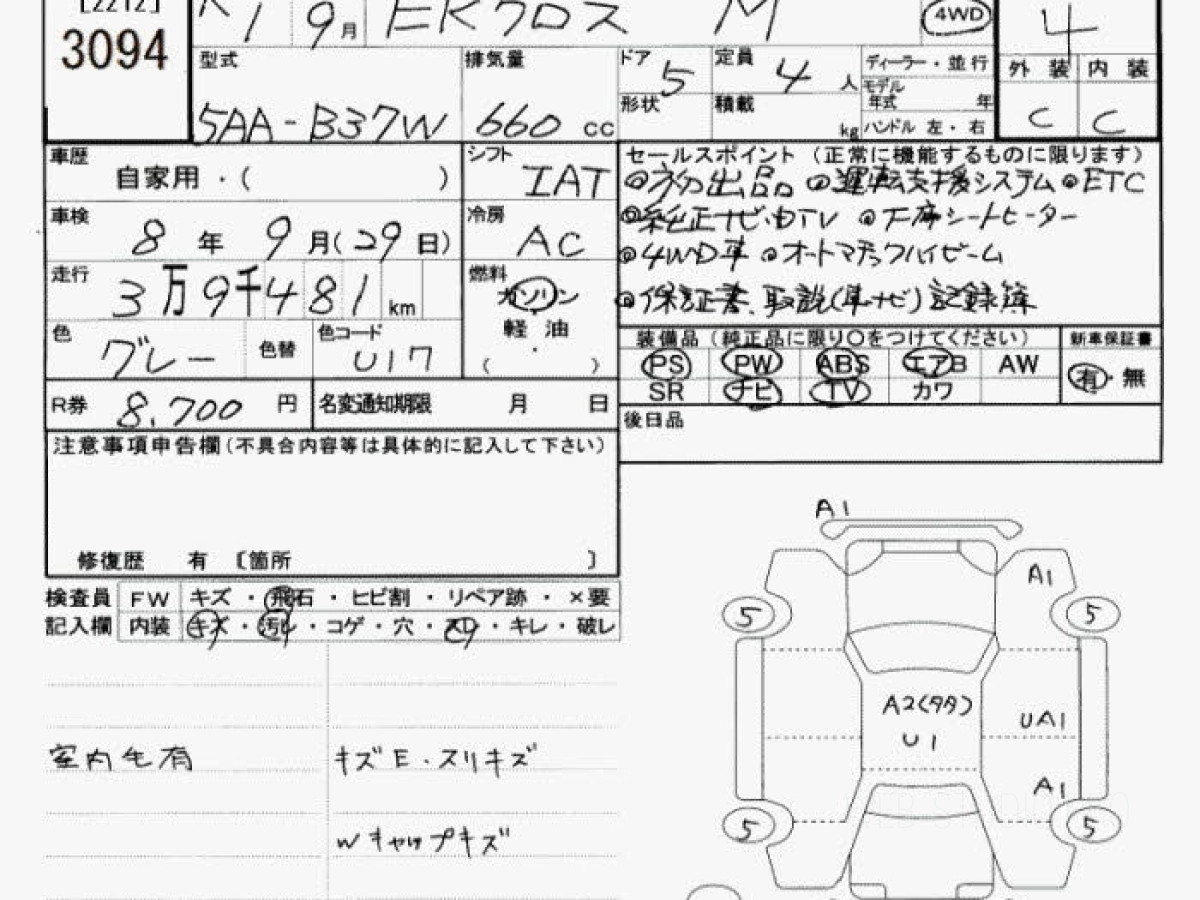 [2212]
3094
R 1 9月 EKクロス M 4WD 4
型式 5AA-B37W
排気量 660 cc
ドア 5
定員 4 人
ディーラー・並行
モデル年式 年
形状
積載 kg
ハンドル 左・右
外装 内装
C C
車歴 自家用・( )
シフト IAT
車検 8年 9月(29日)
冷房 AC
走行 3万9千481 km
燃料 ガソリン
軽油
( )
色 グレー 色替
色コード U17
R券 8,700 円
名変通知期限 月 日
セールスポイント(正常に機能するものに限ります)
◎初出品 ◎運転支援システム ◎ETC
◎純正ナビ・DTV ◎下席シートヒーター
◎4WD車 ◎オートマチックハイビーム
◎保証書、取説(車ナビ)記録簿
装備品(純正品に限り〇をつけてください)
PS PW ABS エアB AW
SR ナビ TV カワ
新車保証書
有・無
後日品
注意事項申告欄(不具合内容等は具体的に記入して下さい)
修復歴 有 〔箇所 〕
検査員 FW キズ・飛石・ヒビ割・リペア跡・×要
記入欄 内装 キズ・汚れ・コゲ・穴・スレ・キレ・破レ
室内毛有
キズE・スリキズ
Wキャップキズ
A1
A1
5 5
A2(タタ)
U1
UA1
A1
5 5